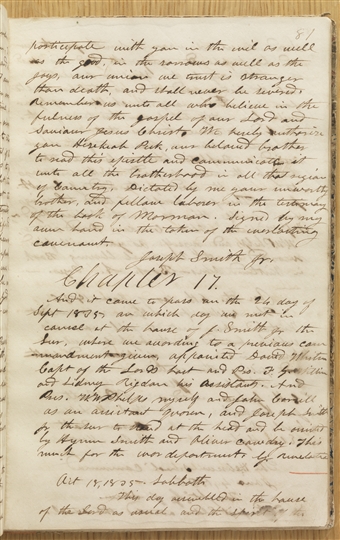 81
participate with you in the evil as well
as the good, in the sorrows as well as the
joys, our union we trust is stronger
than death, and shall never be severed.
Remember us unto all who believe in the
fulness of the gospel of our Lord and
Saviour Jesus Christ. We hereby authorize
you Hezekiah Peck, our beloved brother
to read this epistle and communicate it
unto all the brotherhood in all that region
of country, Dictated by me your unworthy
brother, and fellow laborer in the testimony
of the book of Mormon. Signed by my
own hand in the token of the everlasting
covenant.
Joseph Smith Jr.
Chapter 17.
And it came to pass on the 24 day of
Sept 1835, on which day we met in
council at the house of J. Smith jr the
Seer, where we according to a previous com
mandment given, appointed David Whitmer
Capt of the Lords host and Prs. F. G. Williams
and Sidney Rigdon his assistants. And
Pres. W W Phelps myself and John Corrill
as an assistant quorum, and Joseph Smith
jr the seer to stand at the head and be assisted
by Hyrum Smith and Oliver Cowdery. This
much for the war department, by revelation
Oct 18, 1835 Sabbath
This day assembled in the house
of the Lord as usual and the of the